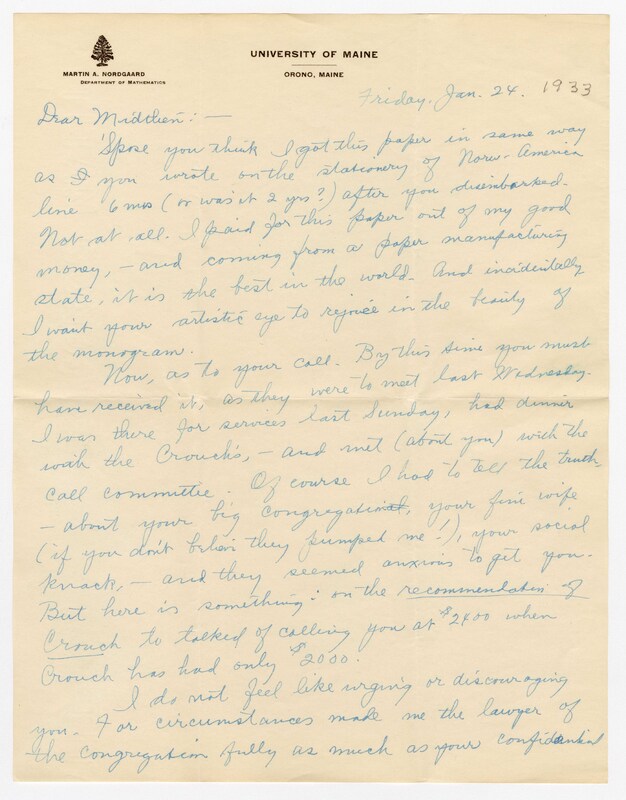 UNIVERSITY OF MAINE
ORONO, MAINE
MARTIN A. NORDGAARD
DEPARTMENT OF MATHEMATICS
Friday. Jan. 24. 1933
Dear Midthen: —
'Spose you think I got this paper in same way
as I you wrote on the stationery of Norw-America
line 6 mos (or was it 2 yrs?) after you disembarked.
Not at all. I paid for this paper out of my good
money, — and coming from a paper manufacturing
state, it is the best in the world. And incidentally
I want your artistic eye to rejoice in the beauty of
the monogram.
Now, as to your call. By this time you must
have received it, as they were to meet last Wednesday.
I was there for services last Sunday, had dinner
with the Crouch's, — and met (about you) with the
call committee. Of course I had to tell the truth
— about your big congregation, your fine wife
(if you don't they pumped me!), your social
knack, — and they seemed anxious to get you.
But here is something: on the recommendation of
Crouch to talked of calling you at $2400 when
Crouch has had only $2000.
I do not feel like urging or discouraging
you. For circumstances made me the lawyer of
the congregation fully as much as your confidential